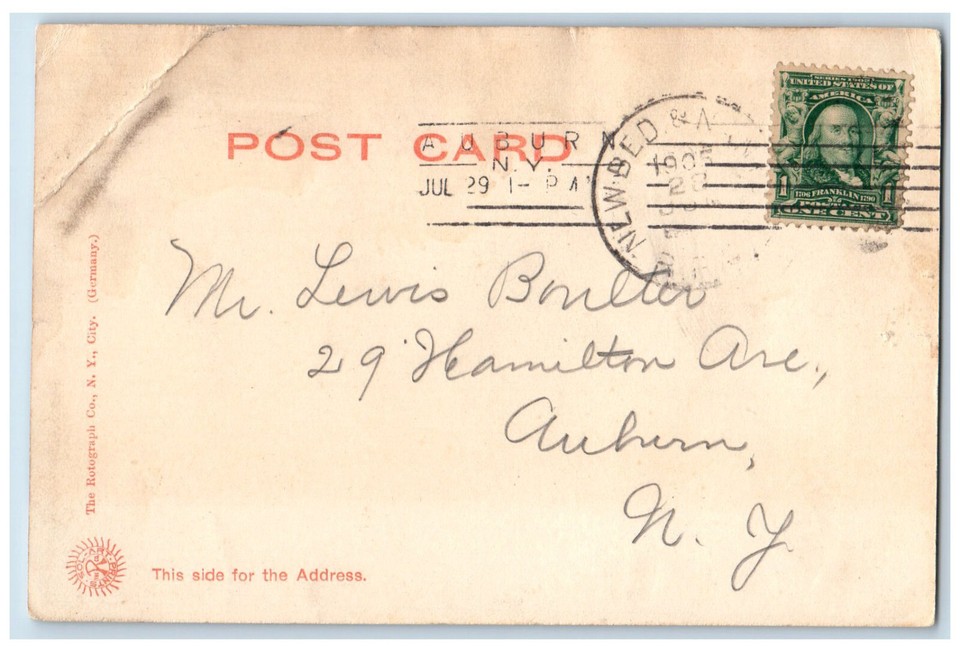 POST CARD
AUBURN
N.Y.
JUL 29 1- P M
NEW BED &
1905
28
SERIES 1902
UNITED STATES OF
AMERICA
1 1
1706 FRANKLIN 1790
POSTAGE
ONE CENT
Mr. Lewis Boulter
29 Hamilton Ave.,
Auburn,
N. Y.
The Rotograph Co., N. Y., City. (Germany.)
This side for the Address.